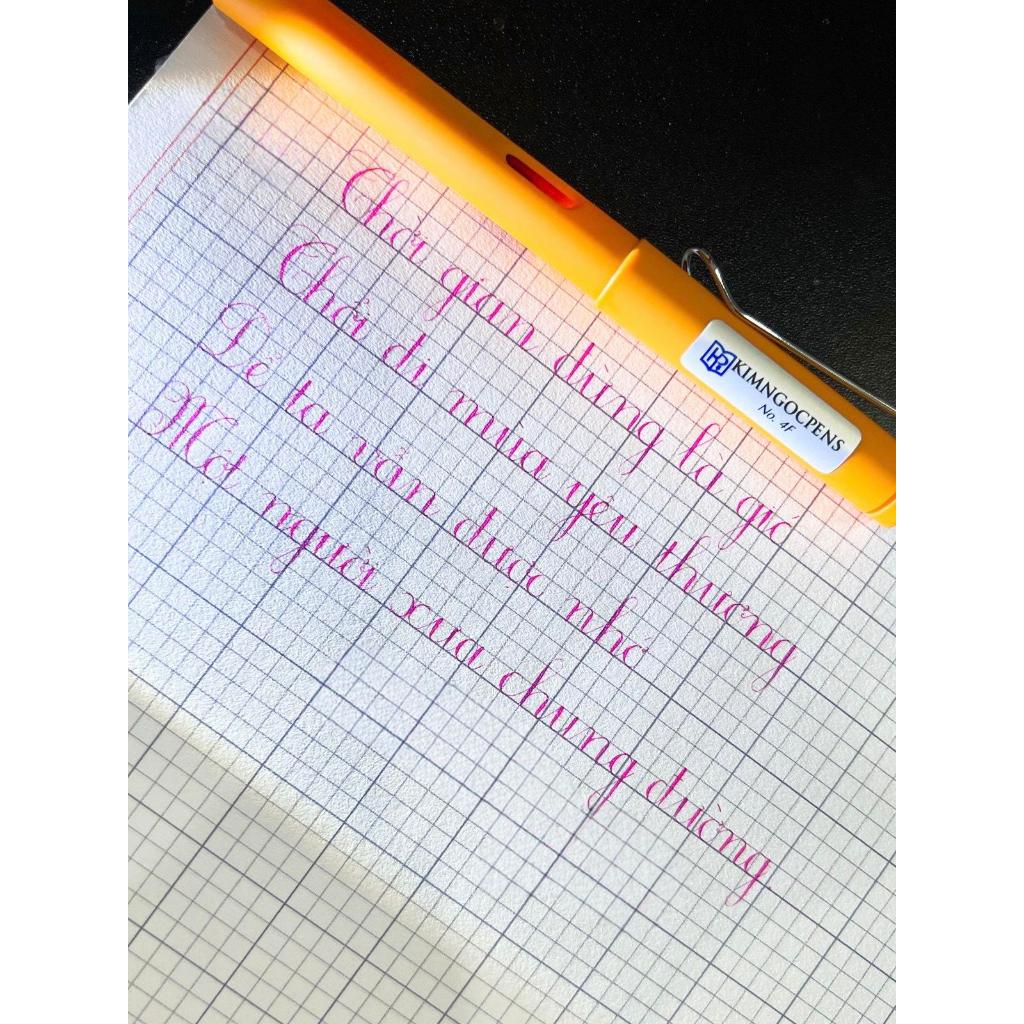 Thời gian đừng là gió
Thổi đi mùa yêu thương
Để ta vẫn được nhớ
Một người xưa chung đường
KIMNGOCPENS
No. 4F